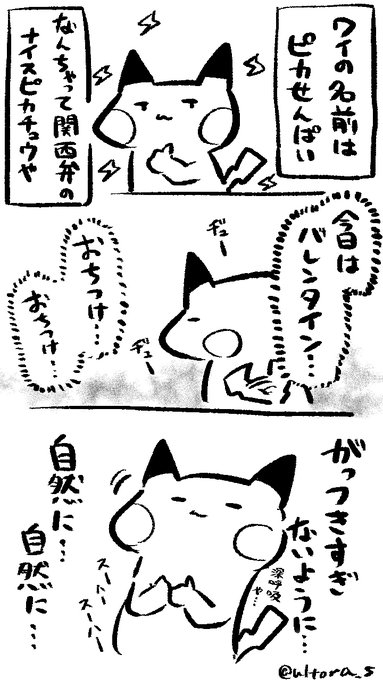 ワイの名前は
ピカせんぱい
なんちゃって関西弁の
ナイスピカチュウや
今日は
バレンタイン…
ヂュー
おちつけ…
おちつけ…
ヂュー
がっつきすぎ
ないように…
深呼吸
や…
自然に…
自然に…
スーハー
スーハー
@ultora_s